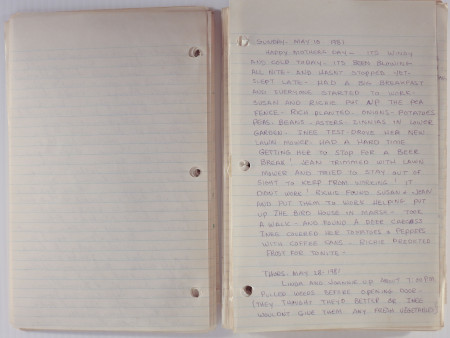 SUNDAY. MAY 10 1981
HAPPY MOTHERS DAY - ITS WINDY
AND COLD TODAY. ITS BEEN BLOWING
ALL NITE - AND HASN'T STOPPED YET-
SLEPT LATE - HAD A BIG BREAKFAST
AND EVERYONE STARTED TO WORK
SUSAN AND RICHIE PUT UP THE PEA
FENCE - RICH PLANTED. ONIONS - POTATOES
PEAS. BEANS - ASTERS. ZINNIAS IN LOWER
GARDEN. INEE TEST-DROVE HER NEW
LAWN MOWER. HAD A HARD TIME
GETTING HER TO STOP FOR A BEER
BREAK! JEAN TRIMMED WITH LAWN
MOWER AND TRIED TO STAY OUT OF
SIGHT TO KEEP FROM WORKING! IT
DIDN'T WORK! RICHIE FOUND SUSAN & JEAN
AND PUT THEM TO WORK HELPING PUT
UP THE BIRD HOUSE IN MARSH - TOOK
A WALK - AND FOUND A DEER CARCASS
INEE COVERED HER TOMATOES & PEPPERS
WITH COFFEE CANS - RICHIE PREDICTED
FROST FOR TONITE -
MAY 28-1981
LINDA AND UP ABOUT 7:30 PM
PULLED WEEDS BEFORE OPENING DOOR -
(THEY THOUGHT THEY'D BETTER OR INEE
WOULDN'T GIVE THEM ANY FRESH VEGETABLES